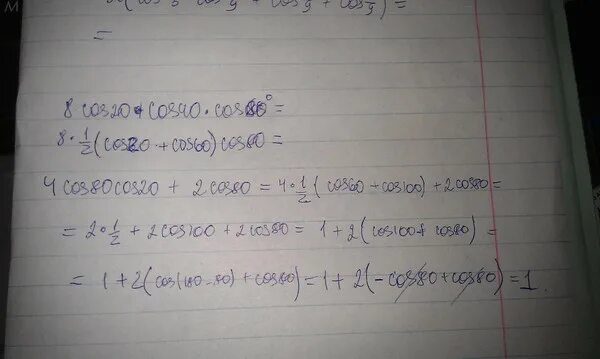 =
8 cos20 · cos40 · cos80° =
8 · 1/2 (cos20 + cos60) cos80 =
4 cos80 cos20 + 2 cos80 = 4 · 1/2 (cos60 + cos100) + 2cos80 =
= 2 · 1/2 + 2cos100 + 2cos80 = 1 + 2(cos100 + cos80) =
= 1 + 2(cos(180-80) + cos80) = 1 + 2(-cos80 + cos80) = 1.